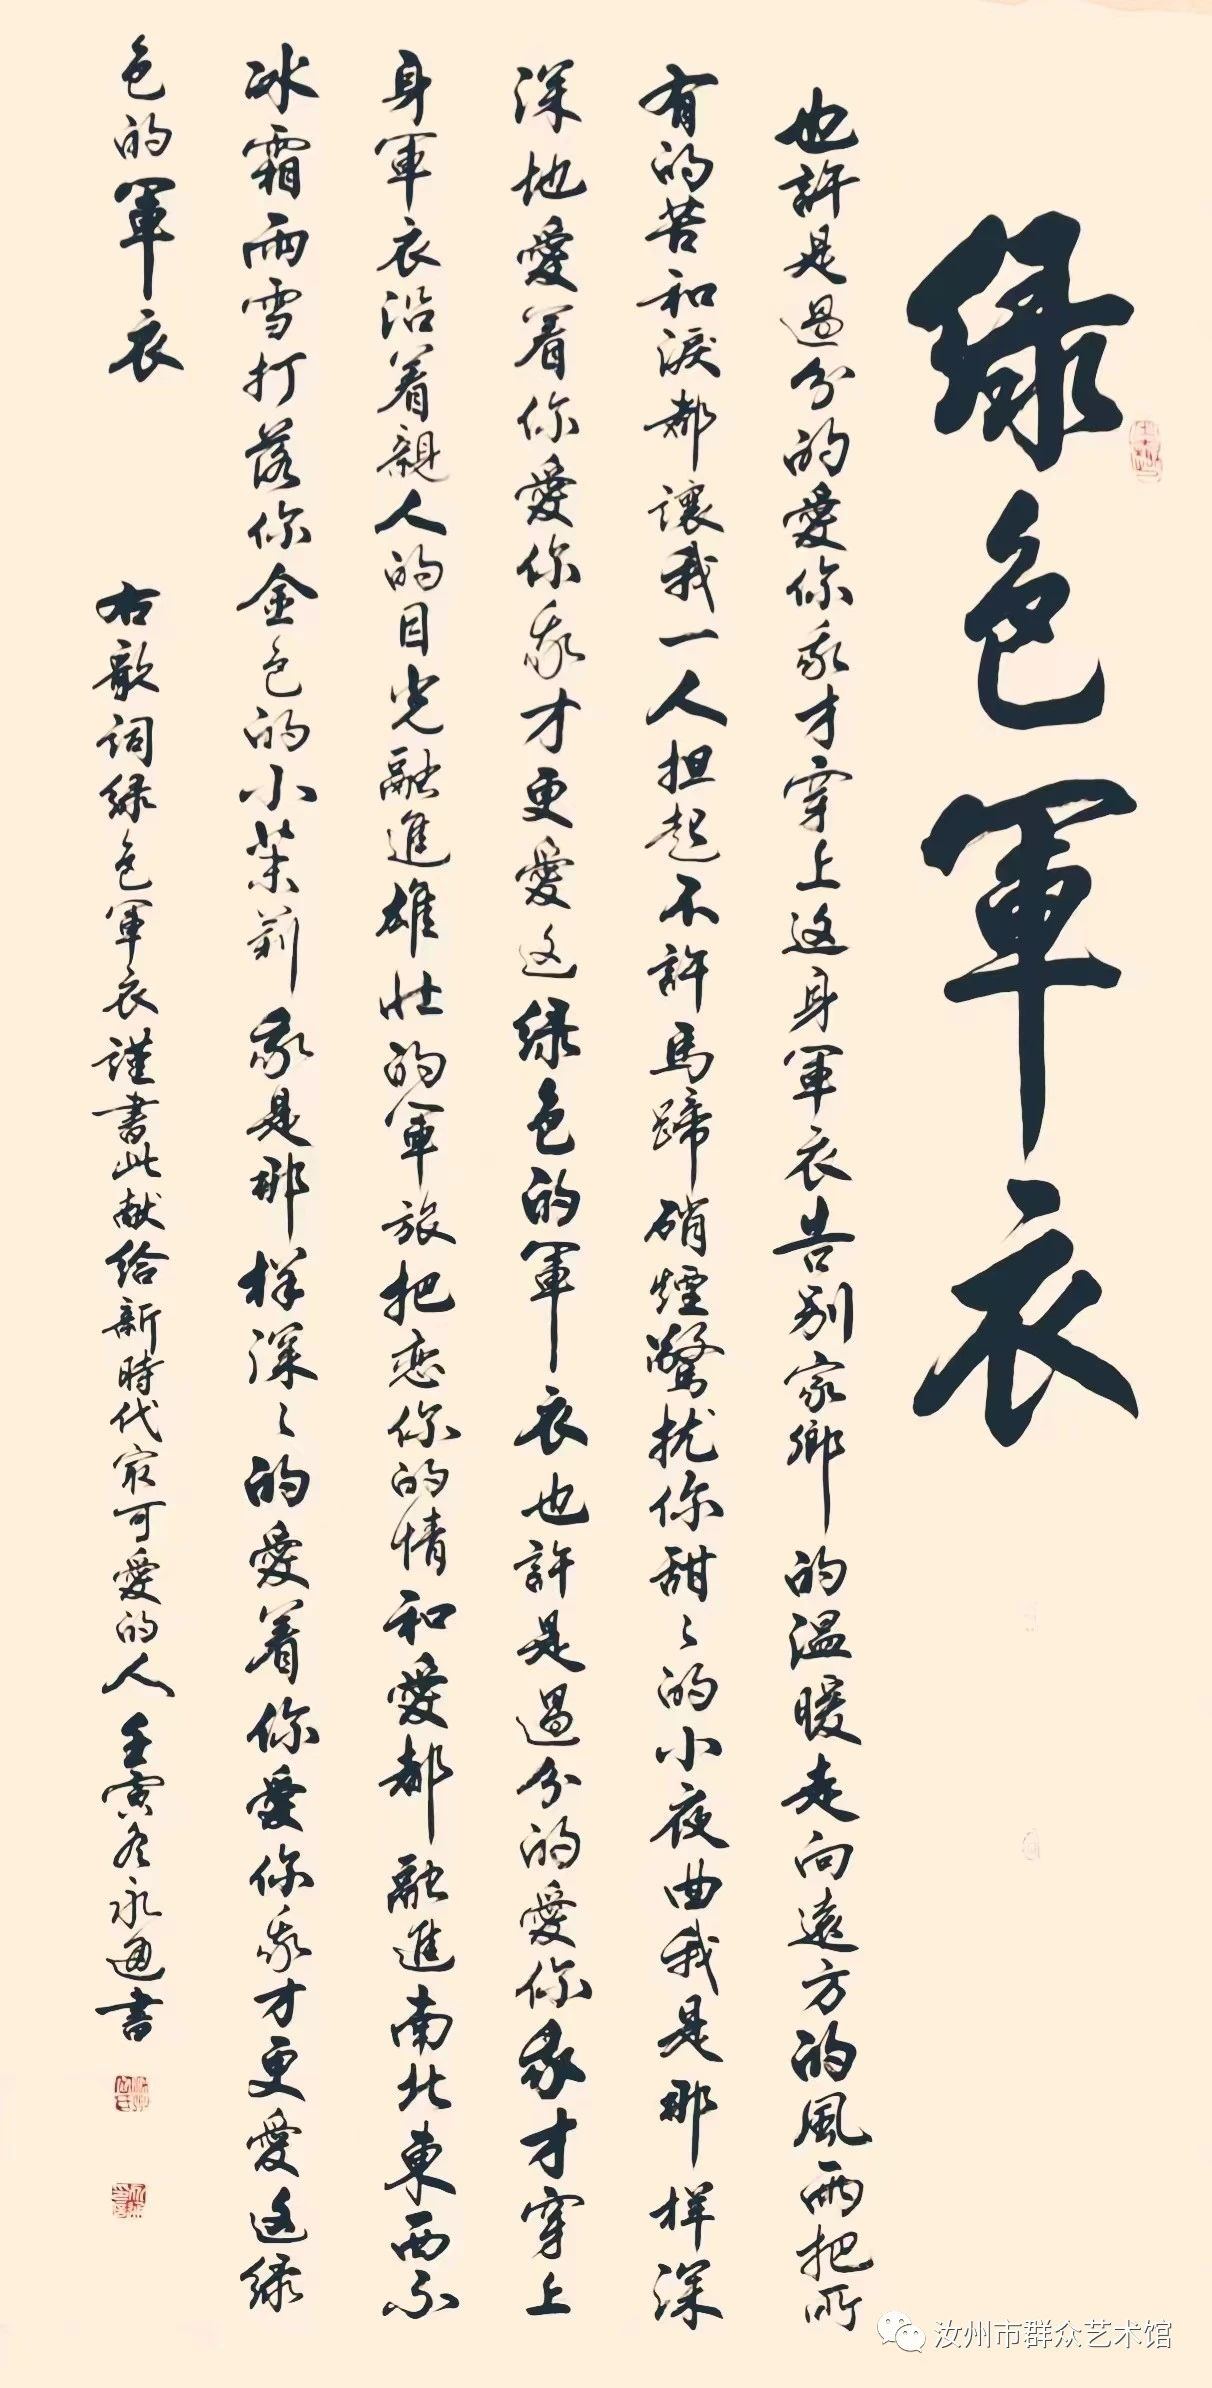 绿色軍衣
也許是過分的愛你我才穿上这身軍衣告别家鄉的温暖走向遠方的風雨把所
有的苦和淚都讓我一人担起不許馬蹄硝煙驚扰你甜々的小夜曲我是那样深
深地愛着你愛你我才更愛这绿色的軍衣也許是過分的愛你我才穿上
身軍衣沿着親人的目光融進雄壮的軍旅把恋你的情和愛都融進南北東西不
冰霜雨雪打落你金色的小茉莉我是那样深々的愛着你愛你我才更愛这绿
色的軍衣
右歌词绿色軍衣謹書此献给新時代最可愛的人壬寅冬永通書
汝州市群众艺术馆